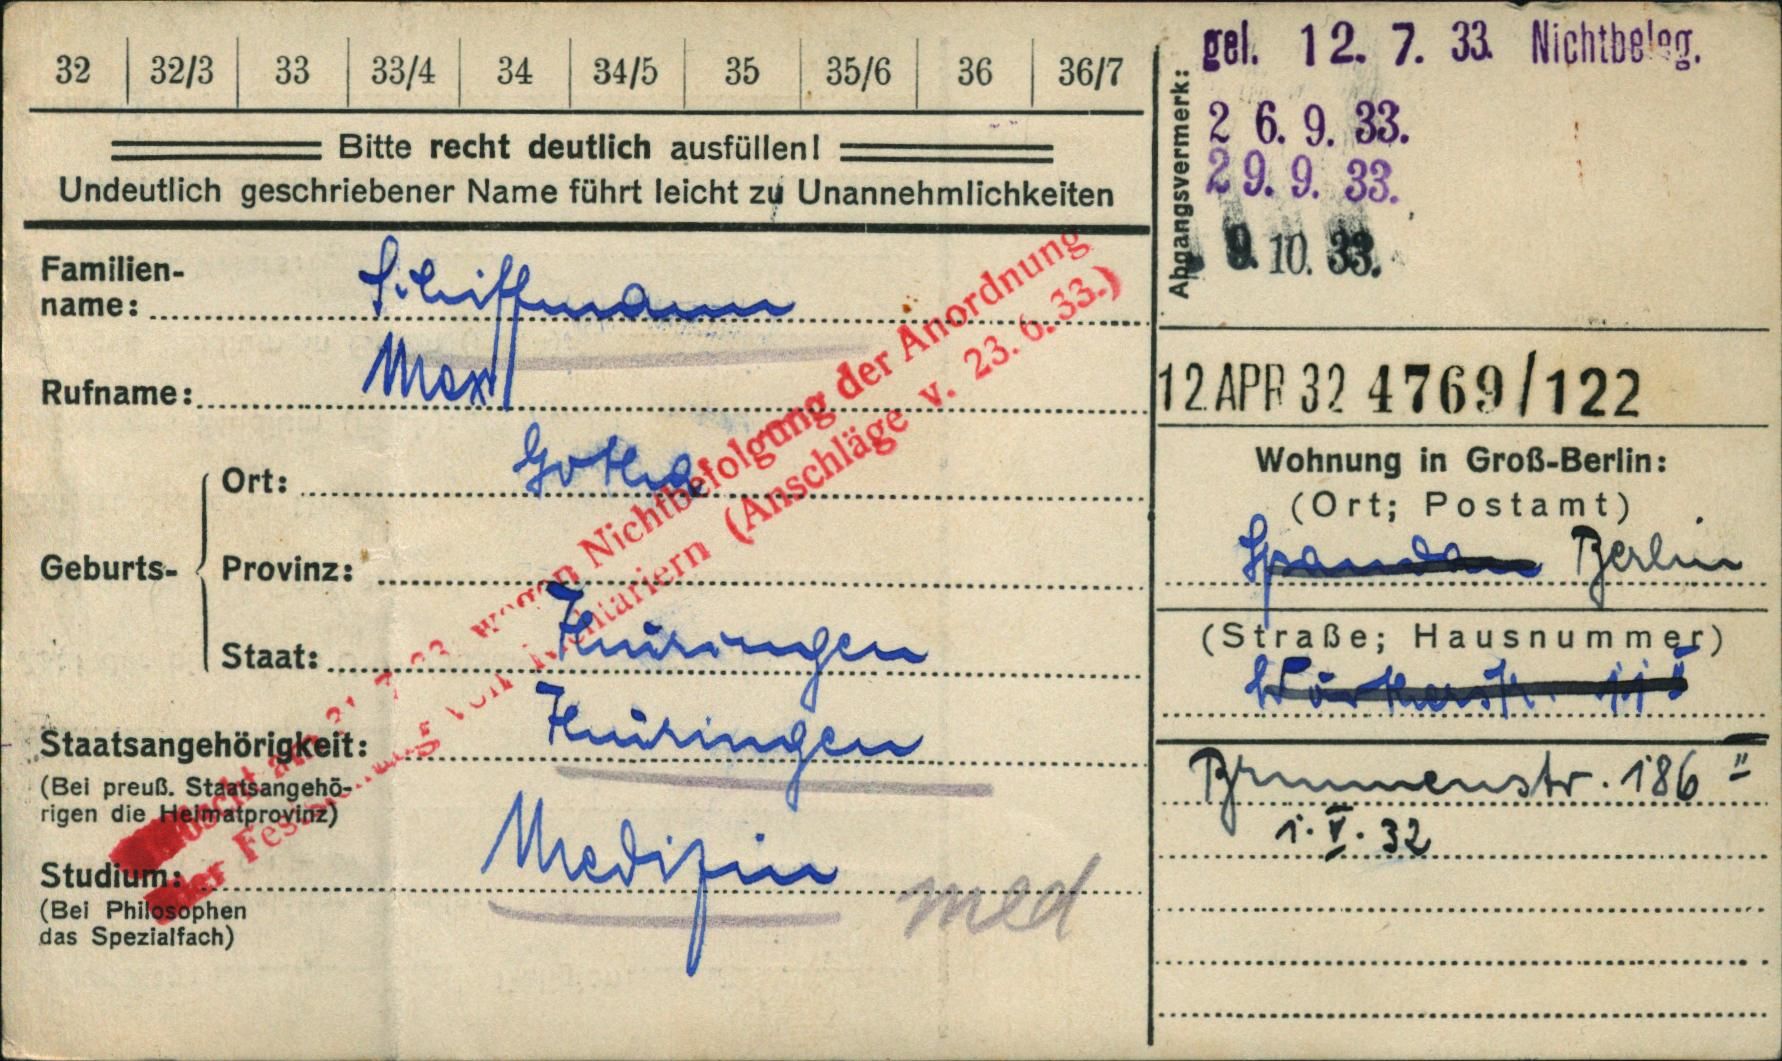 32 32/3 33 33/4 34 34/5 35 35/6 36 36/7
Bitte recht deutlich ausfüllen!
Undeutlich geschriebener Name führt leicht zu Unannehmlichkeiten
Familien-
name: Schiffmann
Rufname: Max
Geburts-
Ort: Gotha
Provinz:
Staat: Thüringen
Staatsangehörigkeit: Thüringen
(Bei preuß. Staatsangehö-
rigen die Heimatprovinz)
Studium: Medizin med
(Bei Philosophen
das Spezialfach)
wegen Nichtbefolgung der Anordnung
der Feststellung von Nichtariern (Anschläge v. 23. 6. 33.)
Abgangsvermerk:
gel. 12. 7. 33. Nichtbeleg.
26. 9. 33.
29. 9. 33.
9. 10. 33.
12 APR 32 4769/122
Wohnung in Groß-Berlin:
(Ort; Postamt)
Spandau Berlin
(Straße; Hausnummer)
Brunnenstr. 186 II
1. V. 32